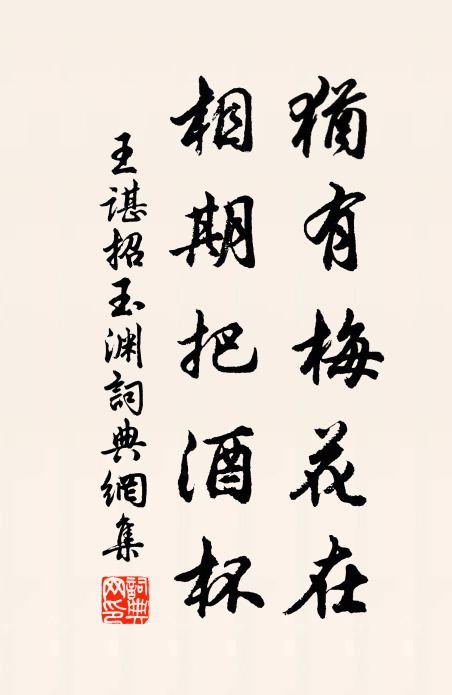 猶有梅花在
相期把酒杯
王諶招玉淵詞典網集
詞典网印